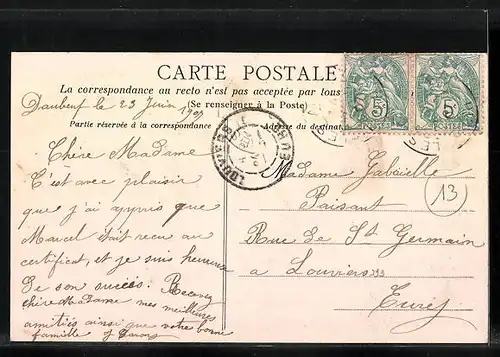 CARTE POSTALE
La correspondance au recto n'est pas acceptée par tous
(Se renseigner à la Poste)
Partie réservée à la correspondance
Adresse du destinat
Daubeuf le 23 Juin 190
Chère Madame
C'est avec plaisir
que j'ai appris que
Marcel était recu au
certificat, et je suis heureux
de son succès. Recevez
chère Madame mes meilleures
amitiés ainsi que votre bonne
famille
Madame Gabrielle
Paisant
Rue de St Germain
a Louviers
Eure
13
5c
5c
POSTES
POSTES
LOUVIERS
EURE